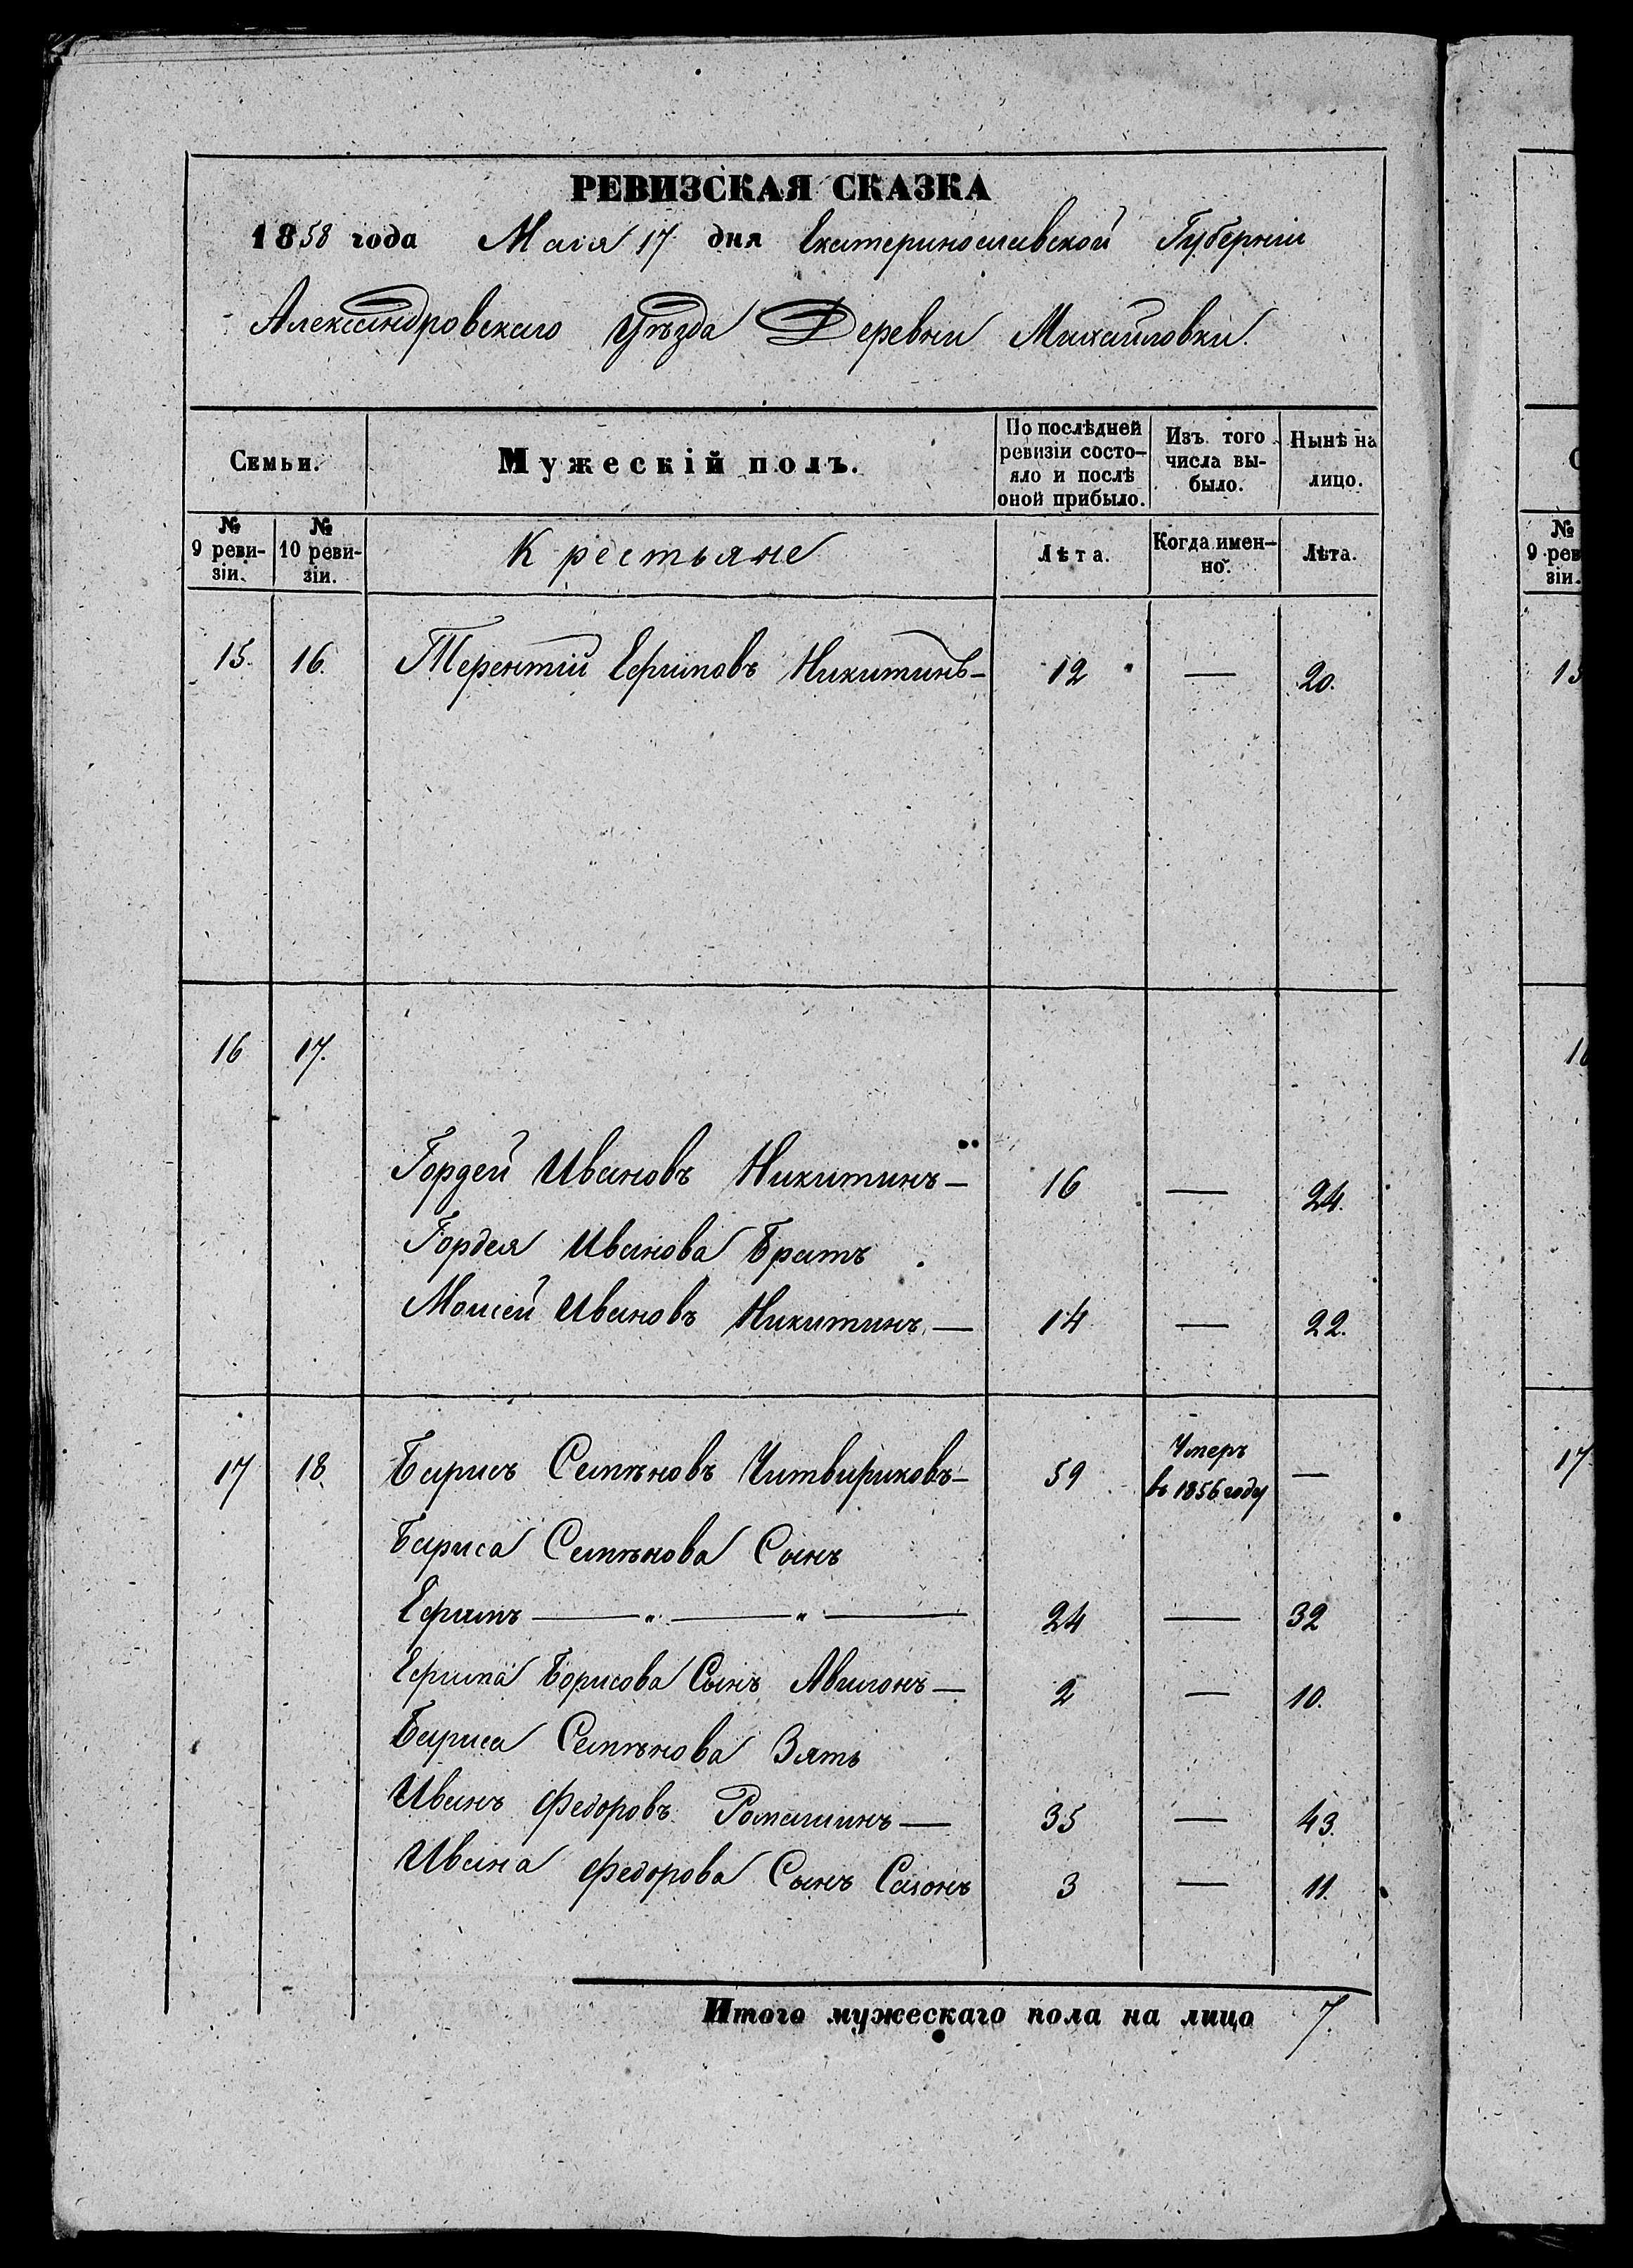 РЕВИЗСКАЯ СКАЗКА
1858 года Маія 17 дня Екатеринославской Губерніи
Александровскаго Уѣзда Деревни Михайловки.
Семьи.
Мужескій полъ.
По послѣдней ревизіи состо-
яло и послѣ
оной прибыло.
Изъ того
числа вы-
было.
Нынѣ на
лицо.
№
9 реви-
зіи.
№
10 реви-
зіи.
Крестьяне
Лѣта.
Когда имен-
но.
Лѣта.
15. 16. Терентій Ефимовъ Никитинъ — 12 — 20.
16 17.
Гордей Ивановъ Никитинъ — 16 — 24.
Гордея Иванова Братъ
Моисей Ивановъ Никитинъ — 14 — 22.
17 18 Барисъ Семѣновъ Читвириковъ — 59 Умеръ
въ 1856 году —
Бариса Семѣнова Сынъ
Ефимъ — " — " — 24 — 32
Ефима Борисова Сынъ — 2 — 10.
Бариса Семѣнова Зять
Иванъ Федоровъ Ромашинъ — 35 — 43.
Ивана Федорова Сынъ 3 — 11.
Итого мужескаго пола на лицо 7.
№
9 рев
зіи.
15
16
17